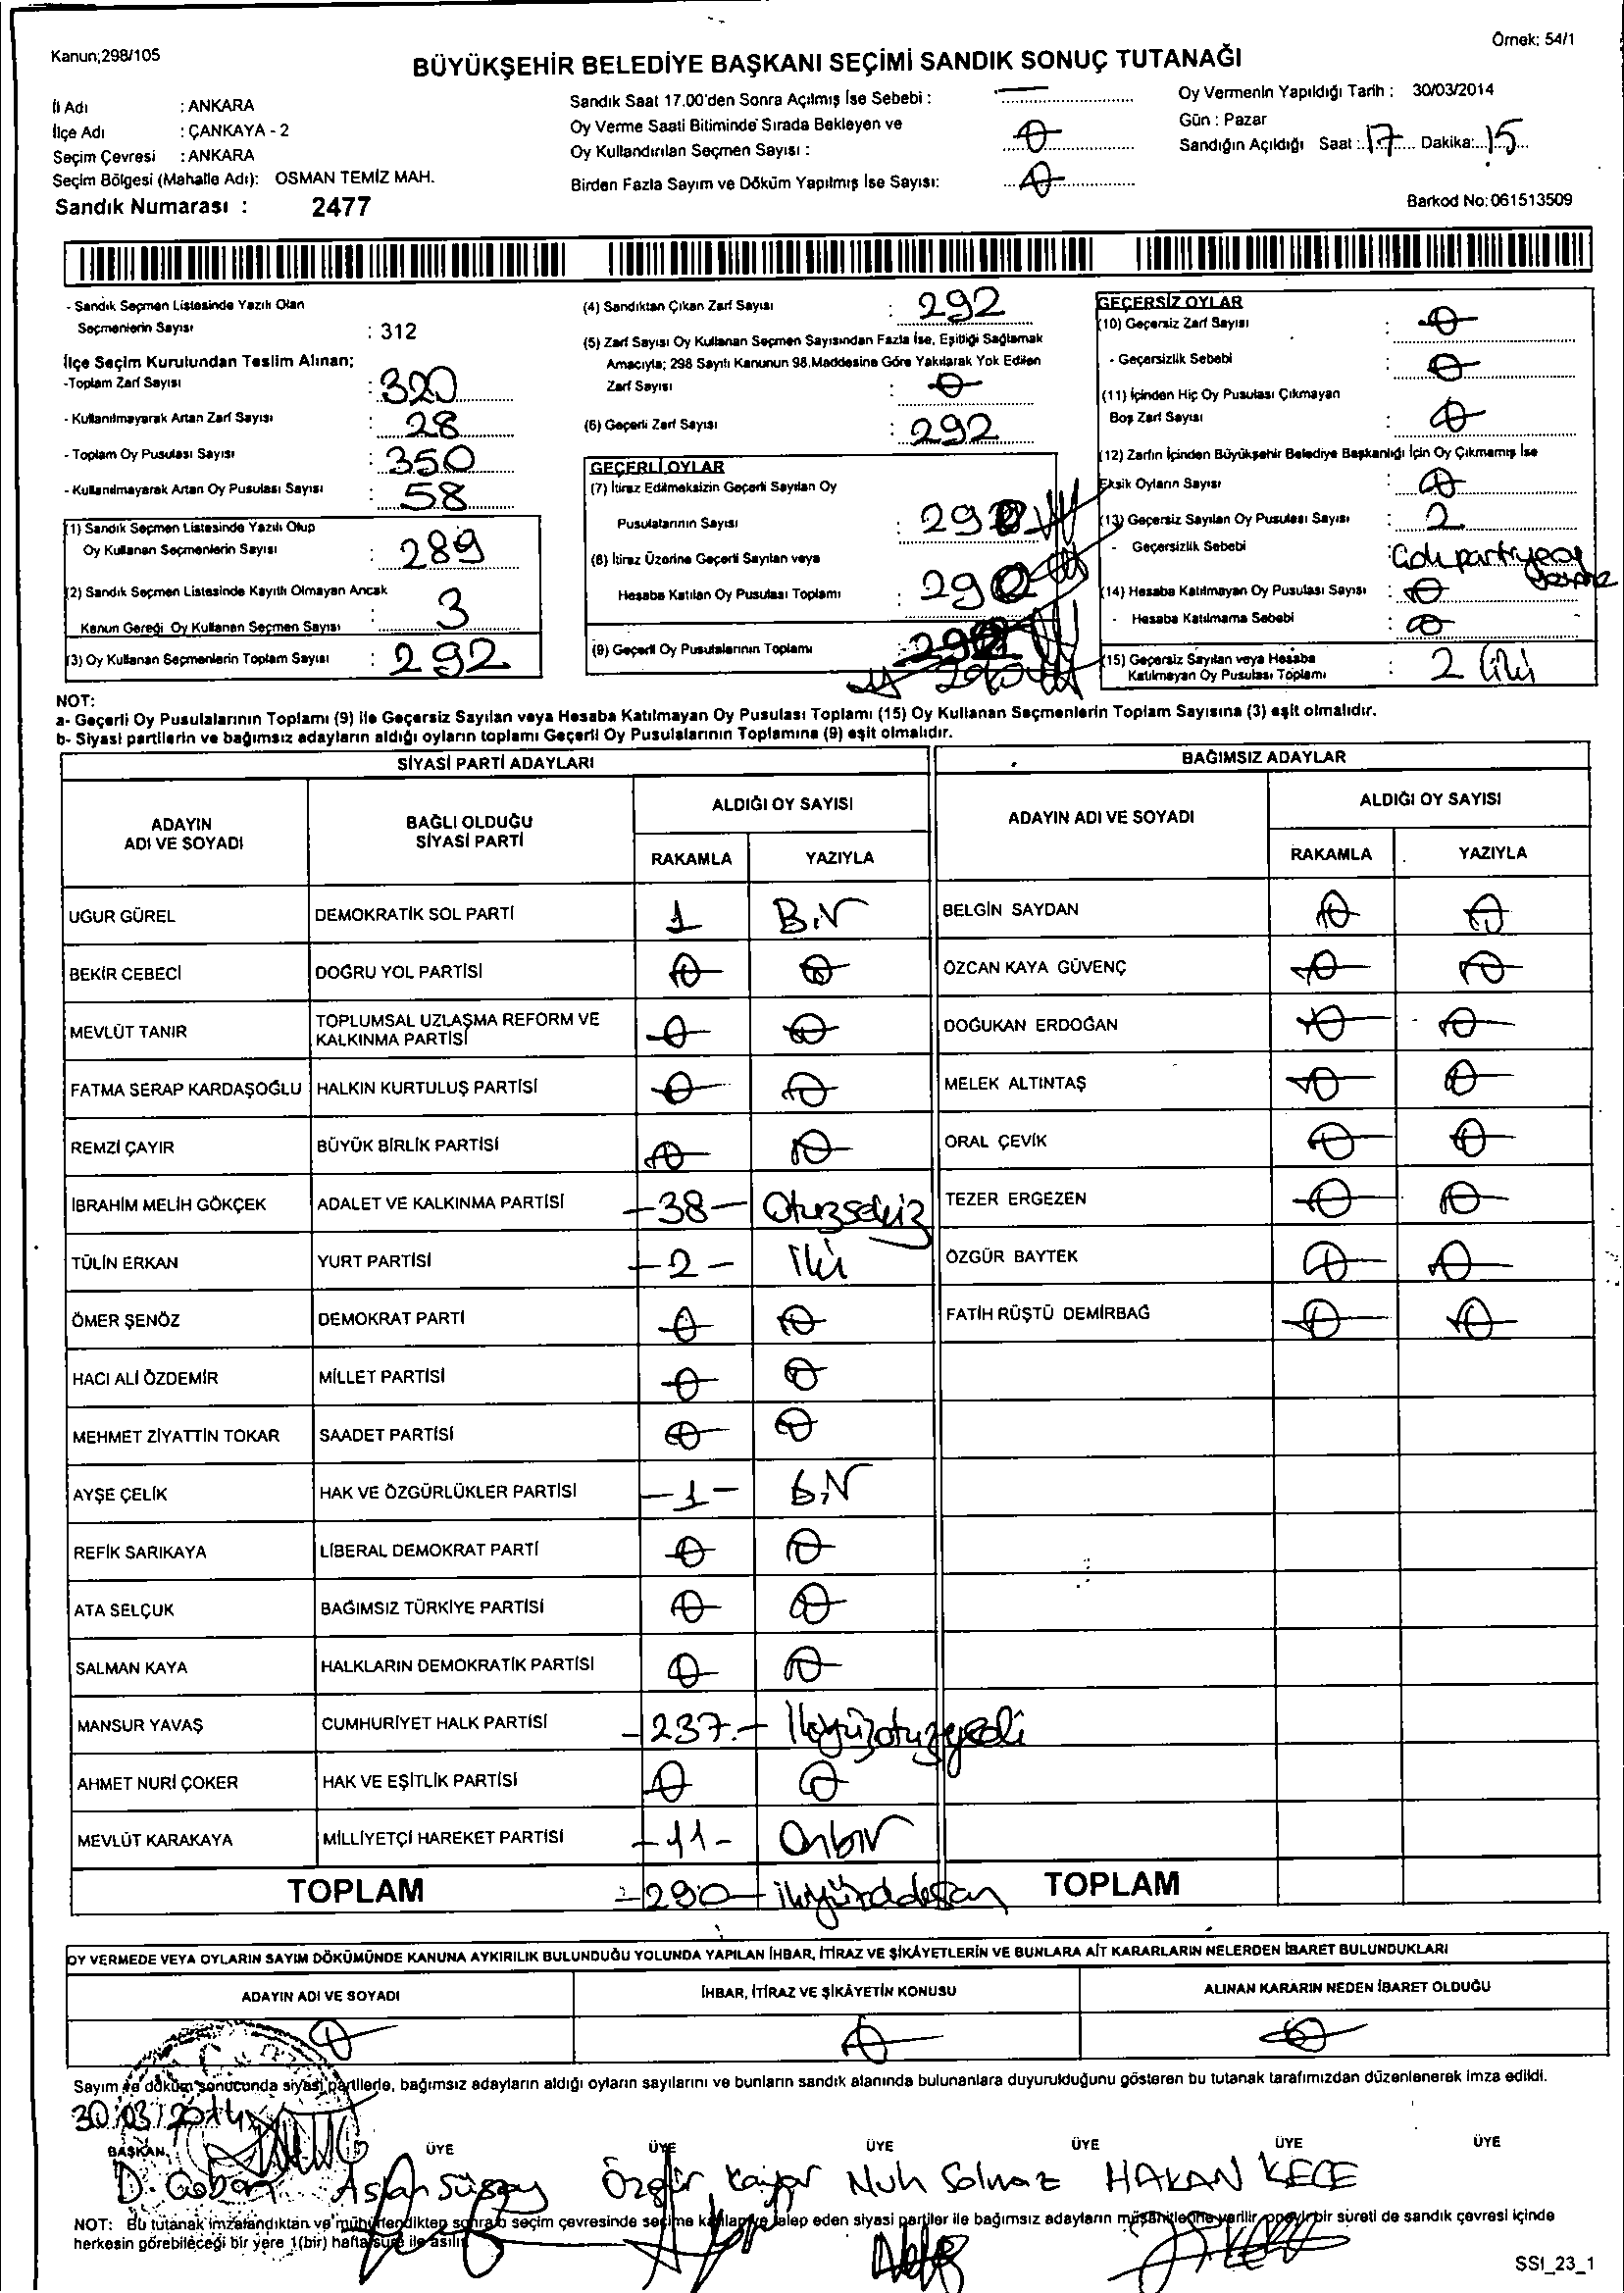 Kanun;298/105
Örnek: 54/1
BÜYÜKŞEHİR BELEDİYE BAŞKANI SEÇİMİ SANDIK SONUÇ TUTANAĞI
İl Adı : ANKARA
İlçe Adı : ÇANKAYA - 2
Seçim Çevresi : ANKARA
Seçim Bölgesi (Mahalle Adı): OSMAN TEMİZ MAH.
Sandık Numarası : 2477
Sandık Saat 17.00'den Sonra Açılmış İse Sebebi : —
Oy Verme Saati Bitiminde Sırada Bekleyen ve
Oy Kullandırılan Seçmen Sayısı : 0
Birden Fazla Sayım ve Döküm Yapılmış İse Sayısı: 0
Oy Vermenin Yapıldığı Tarih : 30/03/2014
Gün : Pazar
Sandığın Açıldığı Saat : 17 Dakika: 15
Barkod No: 061513509
- Sandık Seçmen Listesinde Yazılı Olan
Seçmenlerin Sayısı : 312
İlçe Seçim Kurulundan Teslim Alınan;
-Toplam Zarf Sayısı : 320
- Kullanılmayarak Artan Zarf Sayısı : 28
- Toplam Oy Pusulası Sayısı : 350
- Kullanılmayarak Artan Oy Pusulası Sayısı : 58
(1) Sandık Seçmen Listesinde Yazılı Olup
Oy Kullanan Seçmenlerin Sayısı : 289
(2) Sandık Seçmen Listesinde Kayıtlı Olmayan Ancak
Kanun Gereği Oy Kullanan Seçmen Sayısı : 3
(3) Oy Kullanan Seçmenlerin Toplam Sayısı : 292
(4) Sandıktan Çıkan Zarf Sayısı : 292
(5) Zarf Sayısı Oy Kullanan Seçmen Sayısından Fazla İse, Eşitliği Sağlamak
Amacıyla; 298 Sayılı Kanunun 98.Maddesine Göre Yakılarak Yok Edilen
Zarf Sayısı : 0
(6) Geçerli Zarf Sayısı : 292
GEÇERLİ OYLAR
(7) İtiraz Edilmeksizin Geçerli Sayılan Oy
Pusulalarının Sayısı : 290
(8) İtiraz Üzerine Geçerli Sayılan veya
Hesaba Katılan Oy Pusulası Toplamı : 290
(9) Geçerli Oy Pusulalarının Toplamı
290
GEÇERSİZ OYLAR
(10) Geçersiz Zarf Sayısı : 0
- Geçersizlik Sebebi : 0
(11) İçinden Hiç Oy Pusulası Çıkmayan
Boş Zarf Sayısı : 0
(12) Zarfın İçinden Büyükşehir Belediye Başkanlığı İçin Oy Çıkmamış İse
Eksik Oyların Sayısı : 0
(13) Geçersiz Sayılan Oy Pusulası Sayısı : 2
- Geçersizlik Sebebi :
(14) Hesaba Katılmayan Oy Pusulası Sayısı : 0
- Hesaba Katılmama Sebebi : 0
(15) Geçersiz Sayılan veya Hesaba
Katılmayan Oy Pusulası Toplamı : 2 iki
NOT:
a- Geçerli Oy Pusulalarının Toplamı (9) ile Geçersiz Sayılan veya Hesaba Katılmayan Oy Pusulası Toplamı (15) Oy Kullanan Seçmenlerin Toplam Sayısına (3) eşit olmalıdır.
b- Siyasi partilerin ve bağımsız adayların aldığı oyların toplamı Geçerli Oy Pusulalarının Toplamına (9) eşit olmalıdır.
SİYASİ PARTİ ADAYLARI
BAĞIMSIZ ADAYLAR
ADAYIN ADI VE SOYADI
BAĞLI OLDUĞU SİYASİ PARTİ
ALDIĞI OY SAYISI
RAKAMLA YAZIYLA
ADAYIN ADI VE SOYADI
ALDIĞI OY SAYISI
RAKAMLA YAZIYLA
UĞUR GÜREL DEMOKRATİK SOL PARTİ 1 BİR
BEKİR CEBECİ DOĞRU YOL PARTİSİ 0 0
MEVLÜT TANIR TOPLUMSAL UZLAŞMA REFORM VE KALKINMA PARTİSİ 0 0
FATMA SERAP KARDAŞOĞLU HALKIN KURTULUŞ PARTİSİ 0 0
REMZİ ÇAYIR BÜYÜK BİRLİK PARTİSİ 0 0
İBRAHİM MELİH GÖKÇEK ADALET VE KALKINMA PARTİSİ -38- Otuzsekiz
TÜLİN ERKAN YURT PARTİSİ -2- İki
ÖMER ŞENÖZ DEMOKRAT PARTİ 0 0
HACI ALİ ÖZDEMİR MİLLET PARTİSİ 0 0
MEHMET ZİYATTİN TOKAR SAADET PARTİSİ 0 0
AYŞE ÇELİK HAK VE ÖZGÜRLÜKLER PARTİSİ -1- BİR
REFİK SARIKAYA LİBERAL DEMOKRAT PARTİ 0 0
ATA SELÇUK BAĞIMSIZ TÜRKİYE PARTİSİ 0 0
SALMAN KAYA HALKLARIN DEMOKRATİK PARTİSİ 0 0
MANSUR YAVAŞ CUMHURİYET HALK PARTİSİ -237.- İkiyüzotuzyedi
AHMET NURİ ÇOKER HAK VE EŞİTLİK PARTİSİ 0 0
MEVLÜT KARAKAYA MİLLİYETÇİ HAREKET PARTİSİ -11- Onbir
TOPLAM -290- ikiyüzddoksan
BELGİN SAYDAN 0 0
ÖZCAN KAYA GÜVENÇ 0 0
DOĞUKAN ERDOĞAN 0 0
MELEK ALTINTAŞ 0 0
ORAL ÇEVİK 0 0
TEZER ERGEZEN 0 0
ÖZGÜR BAYTEK 0 0
FATİH RÜŞTÜ DEMİRBAĞ 0 0
TOPLAM
OY VERMEDE VEYA OYLARIN SAYIM DÖKÜMÜNDE KANUNA AYKIRILIK BULUNDUĞU YOLUNDA YAPILAN İHBAR, İTİRAZ VE ŞİKÂYETLERİN VE BUNLARA AİT KARARLARIN NELERDEN İBARET BULUNDUKLARI
ADAYIN ADI VE SOYADI İHBAR, İTİRAZ VE ŞİKÂYETİN KONUSU ALINAN KARARIN NEDEN İBARET OLDUĞU
0 0 0
Sayım ve döküm sonucunda siyasi partilerle, bağımsız adayların aldığı oyların sayılarını ve bunların sandık alanında bulunanlara duyurulduğunu gösteren bu tutanak tarafımızdan düzenlenerek imza edildi.
30/03/2014
BAŞKAN ÜYE ÜYE ÜYE ÜYE ÜYE ÜYE
D. Çoban Aslan Süsoy Özgür Kaygar Nuh Solmaz HAKAN KEÇE
NOT: Bu tutanak imzalandıktan ve mühürlendikten sonra o seçim çevresinde seçime katılan ve talep eden siyasi partiler ile bağımsız adayların müşahitlerine verilir, onaylı bir sureti de sandık çevresi içinde
herkesin görebileceği bir yere 1(bir) hafta süre ile asılır.
SSI_23_1